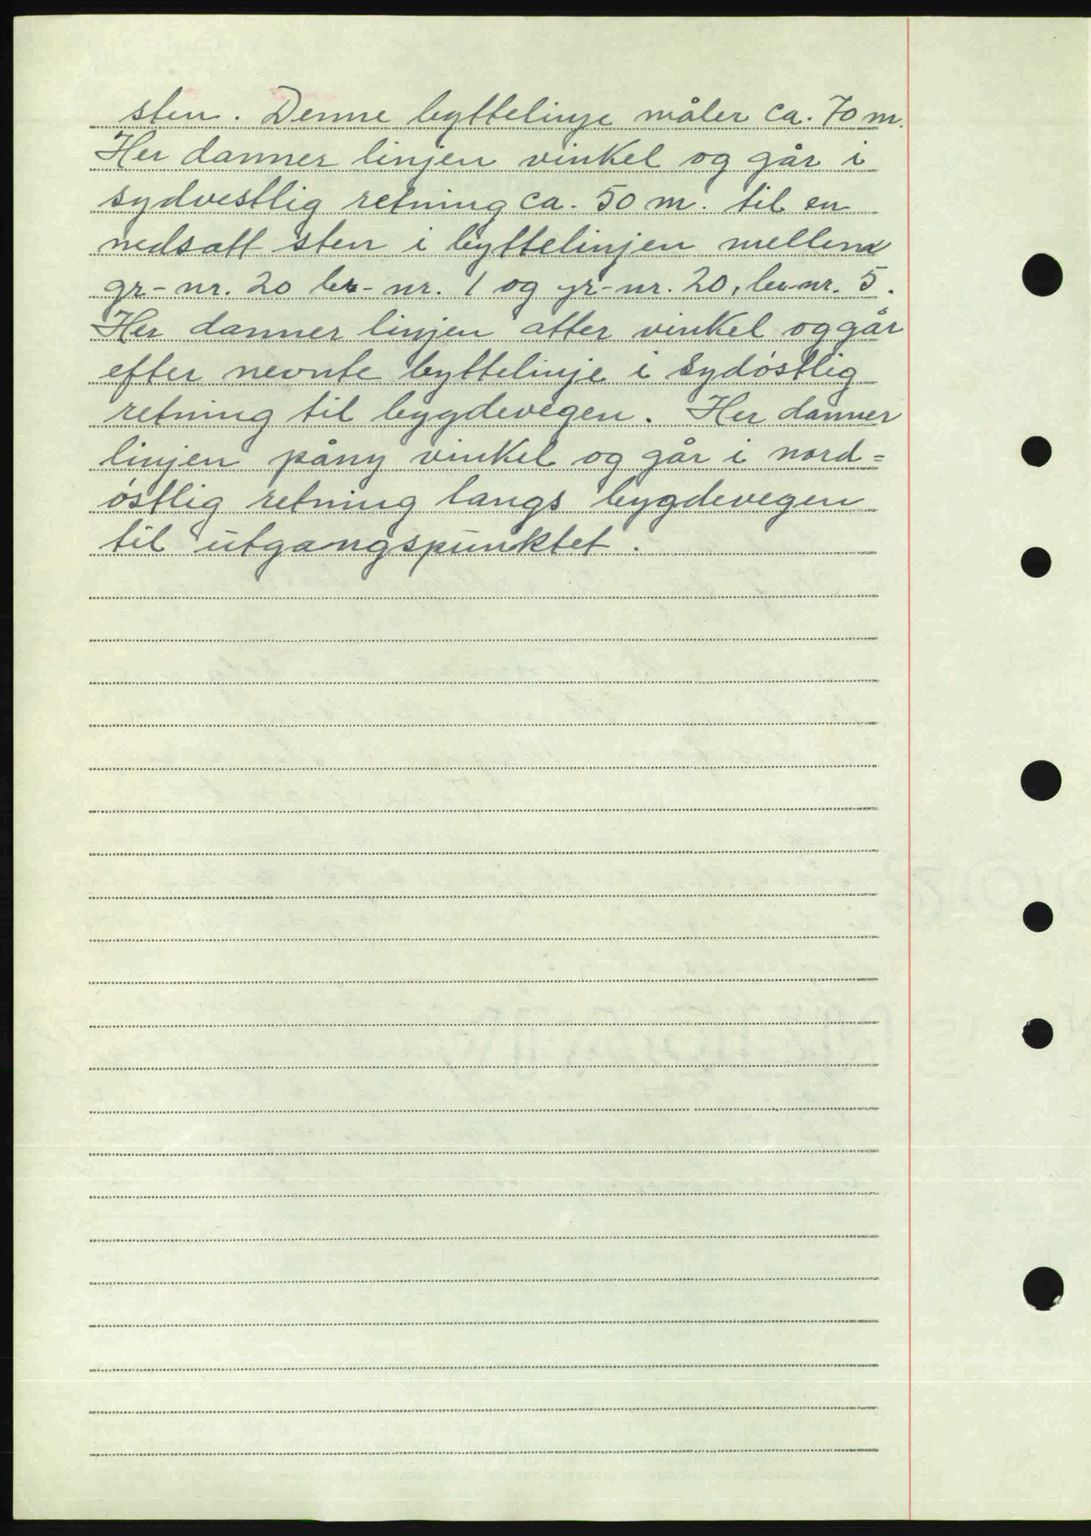 sten. Denne byttelinje måler ca. 70 m.
Her danner linjen vinkel og går i
sydvestlig retning ca. 50 m. til en
nedsatt sten i byttelinjen mellem
gr-nr. 20 br-nr. 1 og gr-nr. 20, br-nr. 5.
Her danner linjen atter vinkel og går
efter nevnte byttelinje i sydøstlig
retning til bygdevegen. Her danner
linjen påny vinkel og går i nord=
østlig retning langs bygdevegen
til utgangspunktet.